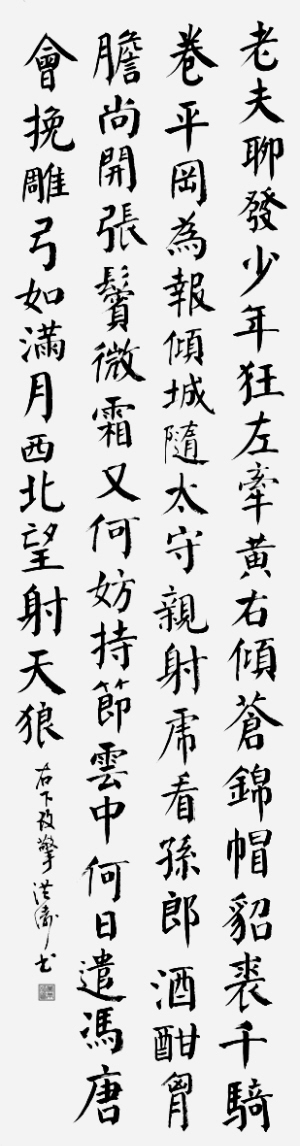 老夫聊發少年狂左牽黃右傾蒼錦帽貂裘千騎
卷平岡為報傾城隨太守親射虎看孫郎酒酣胷
膽尚開張鬢微霜又何妨持節雲中何日遣馮唐
會挽雕弓如滿月西北望射天狼
洪濤书